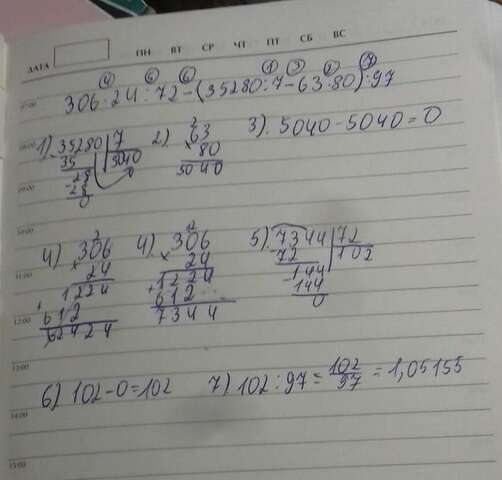 ДАТА ПН ВТ СР ЧТ ПТ СБ ВС
4 5 6 1 3 2 7
306·24:72-(35280:7-63·80):97
07:00
08:00
1) 35280 7
35 5040
-28
28
0
2) 2
63
× 80
5040
3) 5040-5040=0
09:00
10:00
4) 2
306
× 24
1224
+
612
62424
4) 12
306
× 24
+1224
612
7344
5) 7344 72
-72 102
-144
144
0
11:00
12:00
13:00
6) 102-0=102 7) 102:97=102/97=1,05155
14:00
15:00